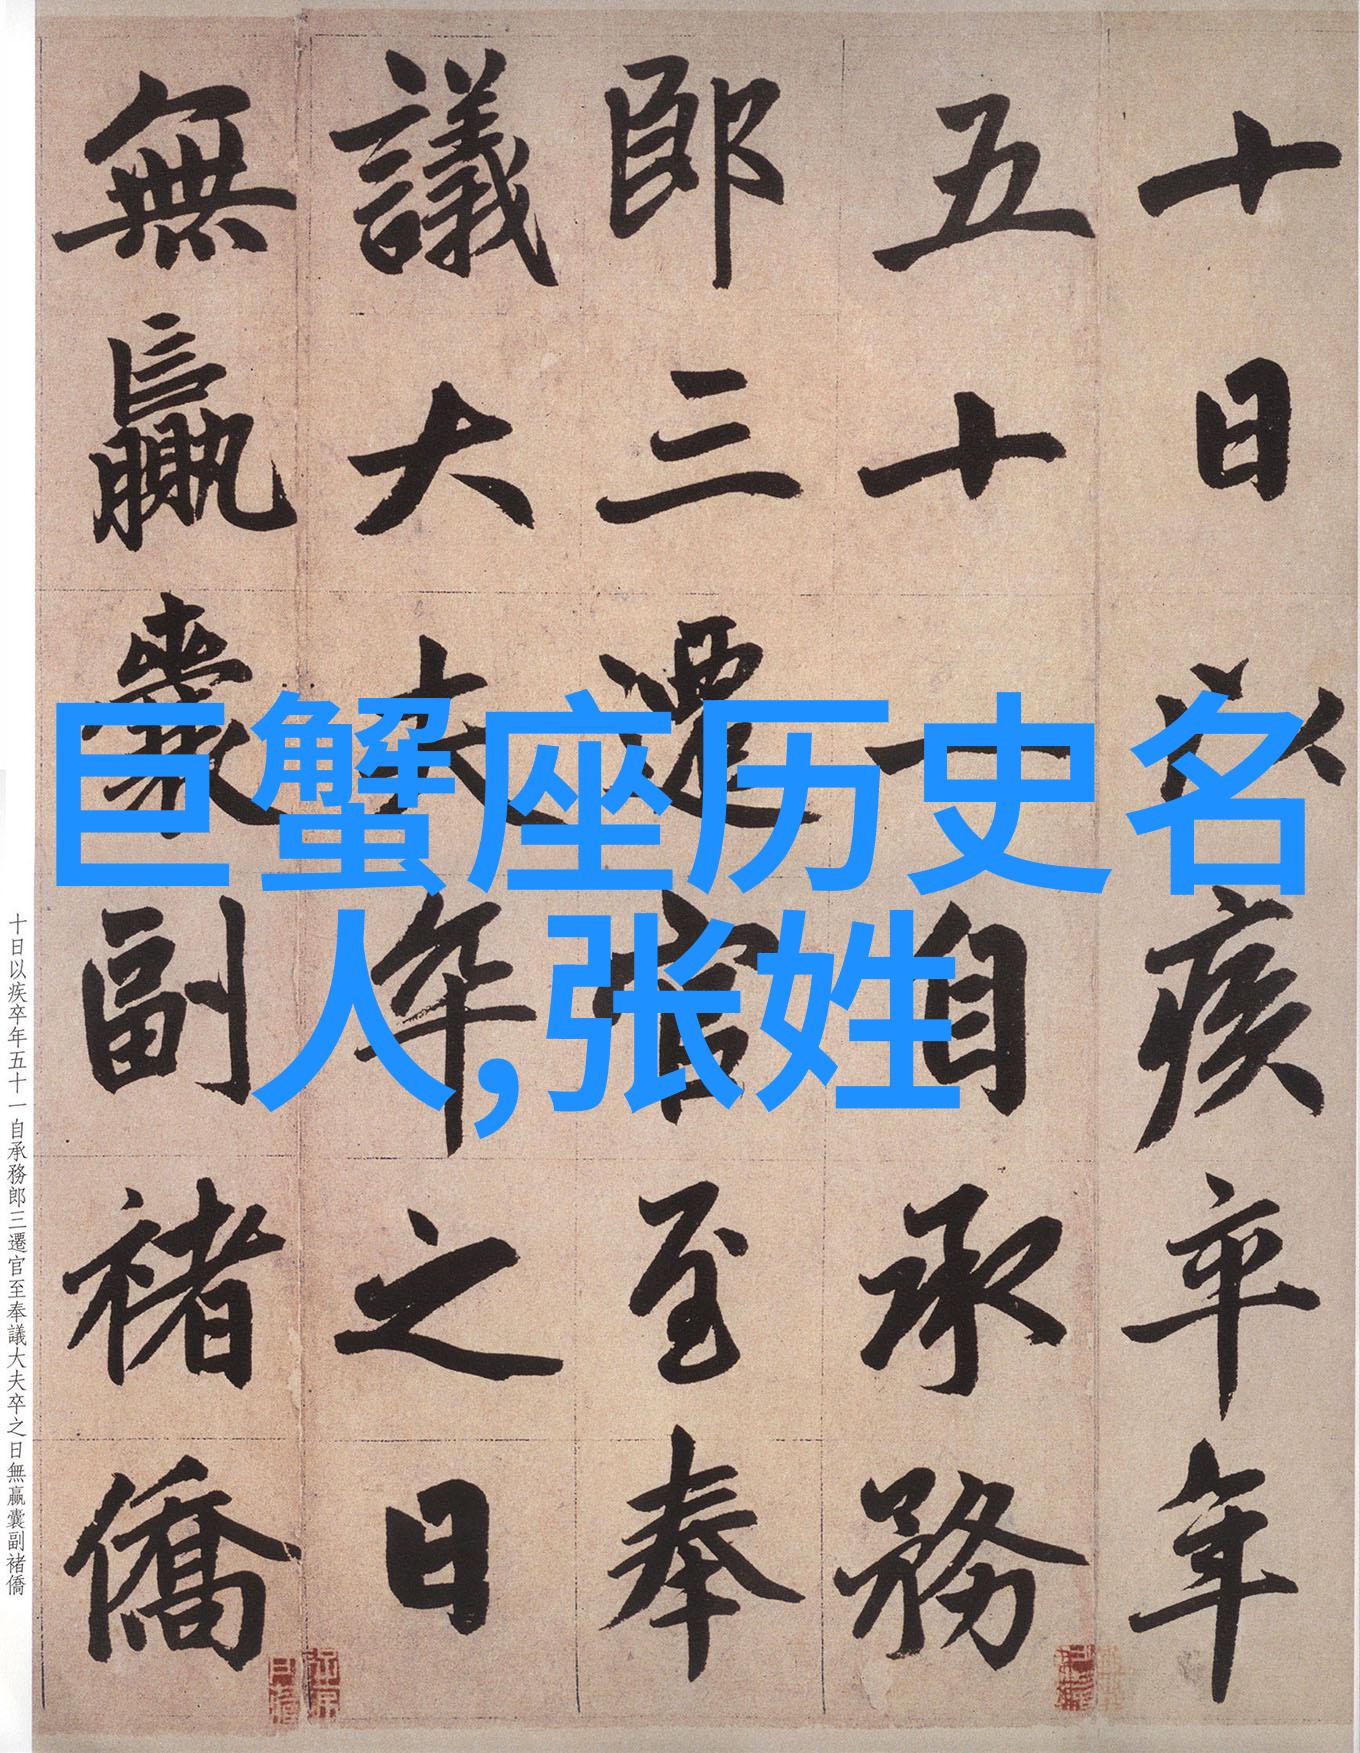 十日以疾卒年
五十一自承務
郎三遷官至奉
議大夫卒之日
無贏囊副褚僑
巨蟹座历史名
人,张姓
十日以疾卒年五十一自承務郎三遷官至奉議大夫卒之日無贏囊副褚僑